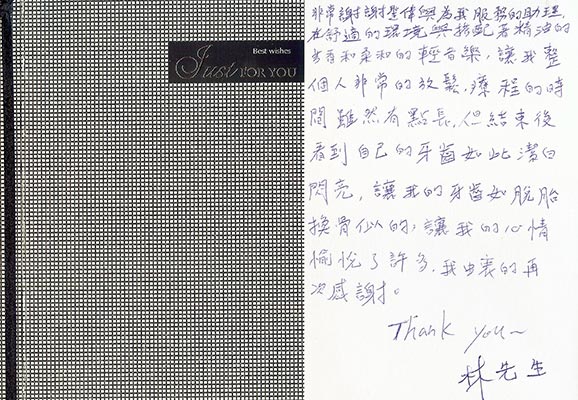 Best wishes
Just FOR YOU
非常謝謝楚偉與為我服務的助理,
在舒適的環境與搭配著精油的
芳香和柔和的輕音樂,讓我整
個人非常的放鬆,療程的時
間雖然有點長,但結束後
看到自己的牙齒如此潔白
閃亮,讓我的牙齒如脫胎
換骨似的,讓我的心情
愉悅了許多,我由衷的再
次感謝。
Thank you~
林先生